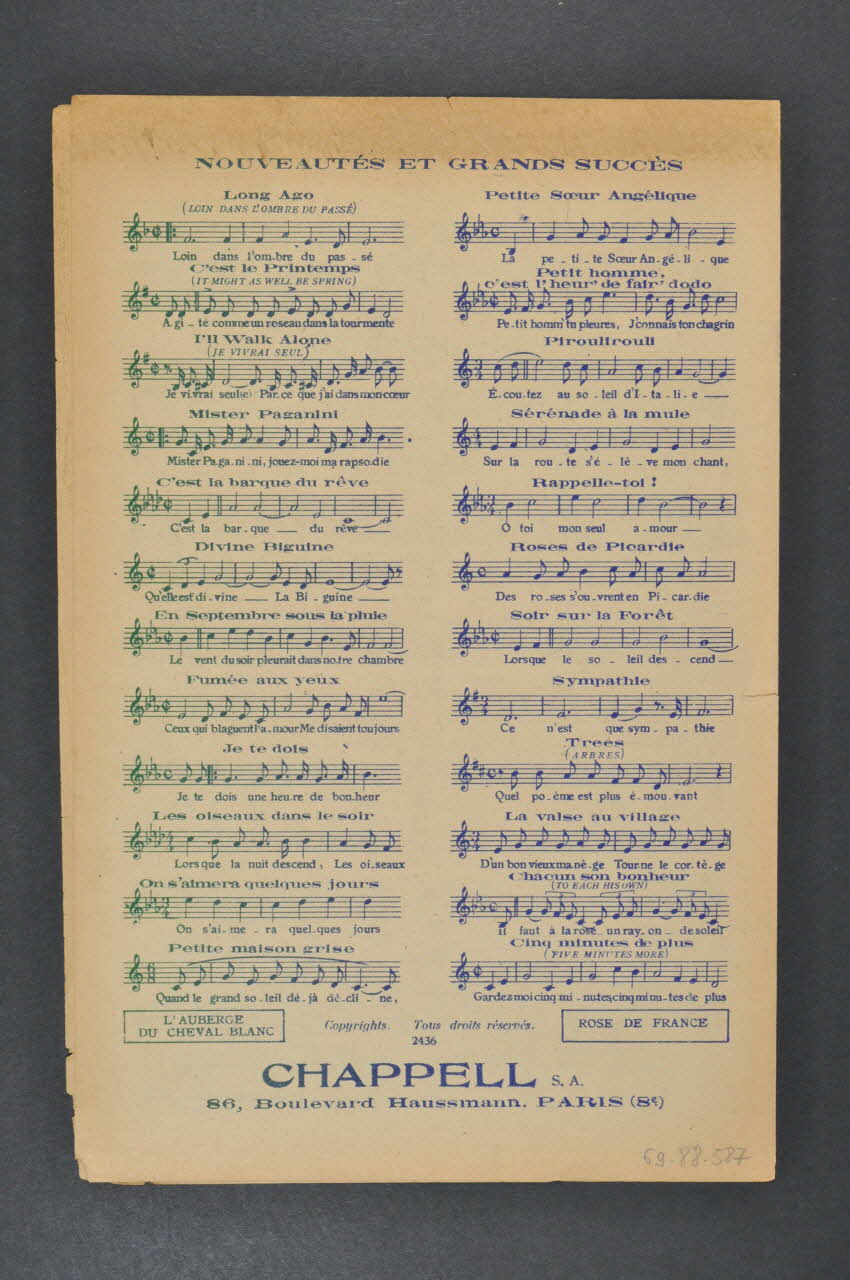 NOUVEAUTÉS ET GRANDS SUCCÈS
Long Ago
(LOIN DANS L'OMBRE DU PASSÉ)
Loin dans l'om.bre du pas - sé
C'est le Printemps
(IT MIGHT AS WELL BE SPRING)
A.gi - té comme un roseau dans la tourmente
I'll Walk Alone
(JE VIVRAI SEUL)
Je vi.vrai seul(e) Par.ce que j'ai dans mon cœur
Mister Paganini
Mister Pa.ga.ni.ni, jouez-moi ma rapso.die
C'est la barque du rêve
C'est la bar - que du rêve
Divine Biguine
Qu'elle est di - vine La Bi - guine
En Septembre sous la pluie
Le vent du soir pleurait dans no.tre chambre
Fumée aux yeux
Ceux qui blaguent l'a.mour Me disaient toujours
Je te dois
Je te dois une heu.re de bon.heur
Les oiseaux dans le soir
Lorsque la nuit descend, Les oi.seaux
On s'aimera quelques jours
On s'ai - me - ra quel.ques jours
Petite maison grise
Quand le grand so.leil dé.jà dé.cli - ne,
Petite Sœur Angélique
La pe - ti - te Sœur An - gé - li - que
Petit homme,
c'est l'heur' de fair' dodo
Pe.tit homm' tu pleures, J'connais ton chagrin
Piroulirouli
É.cou.tez au so - leil d'I - ta - li - e
Sérénade à la mule
Sur la rou - te s'é - lè - ve mon chant,
Rappelle-toi !
O toi mon seul a - mour
Roses de Picardie
Des ro - ses s'ou.vrent en Pi - car.die
Soir sur la Forêt
Lorsque le so - leil des - cend
Sympathie
Ce n'est que sym - pa - thie
Trees
(ARBRES)
Quel po.ème est plus é.mou.vant
La valse au village
D'un bon vieux ma.nè.ge Tour.ne le cor.tè.ge
Chacun son bonheur
(TO EACH HIS OWN)
Il faut à la rose un ray.on de soleil
Cinq minutes de plus
(FIVE MINUTES MORE)
Gardez moi cinq mi - nutes, cinq mi nu - tes de plus
L'AUBERGE
DU CHEVAL BLANC
Copyrights. Tous droits réservés.
2436
ROSE DE FRANCE
CHAPPELL S.A.
86, Boulevard Haussmann. PARIS (8e)
69.88.587